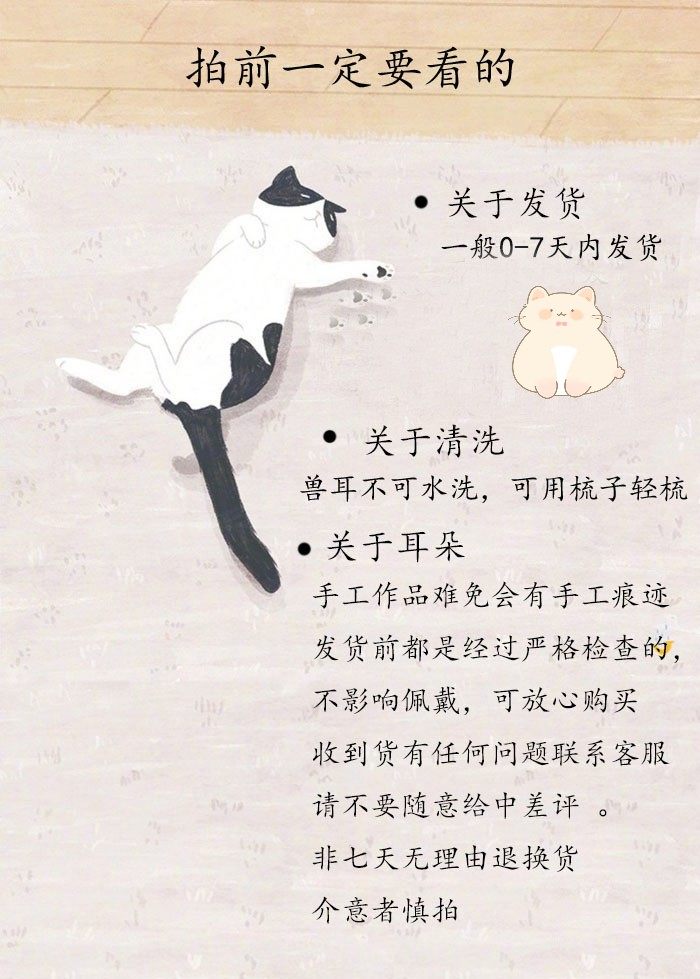 拍前一定要看的
关于发货
一般0-7天内发货
关于清洗
兽耳不可水洗，可用梳子轻梳
关于耳朵
手工作品难免会有手工痕迹
发货前都是经过严格检查的，
不影响佩戴，可放心购买
收到货有任何问题联系客服
请不要随意给中差评 。
非七天无理由退换货
介意者慎拍